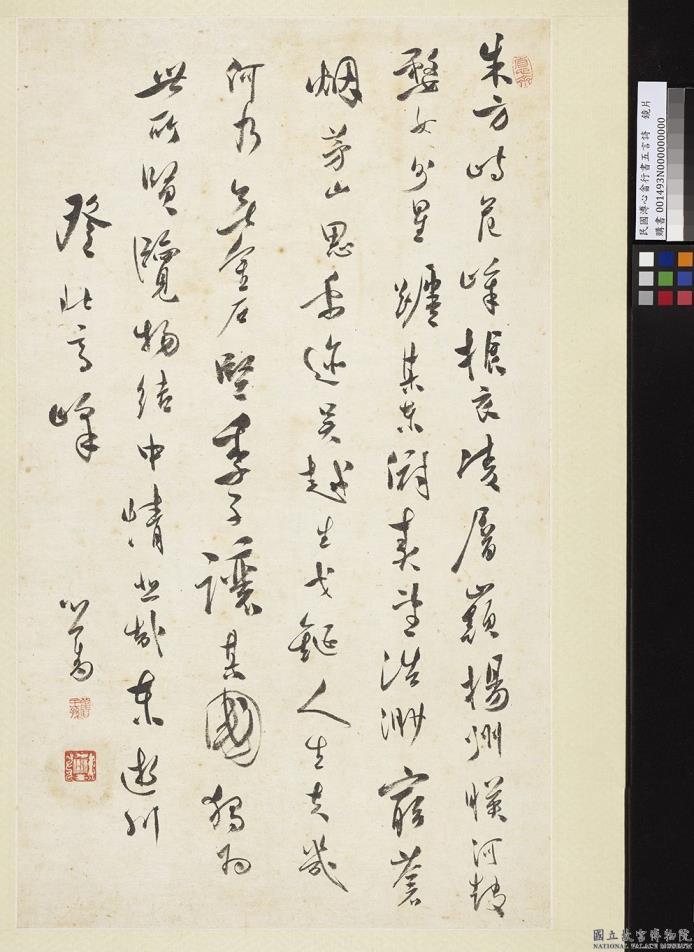 朱方峙危峰振衣凌層巔揚州暎河鼓
婺女分星躔其東望浩渺窮蒼
烟茅山思迹吳越生戈鋋人生幾
何乃無金石堅季子讓其國獨為
世所賢覽物結中情悲哉東逝川
登北高峰
心畬
民國溥心畬行書五言詩　鏡片
購書001493N000000000
國立故宮博物院
NATIONAL PALACE MUSEUM